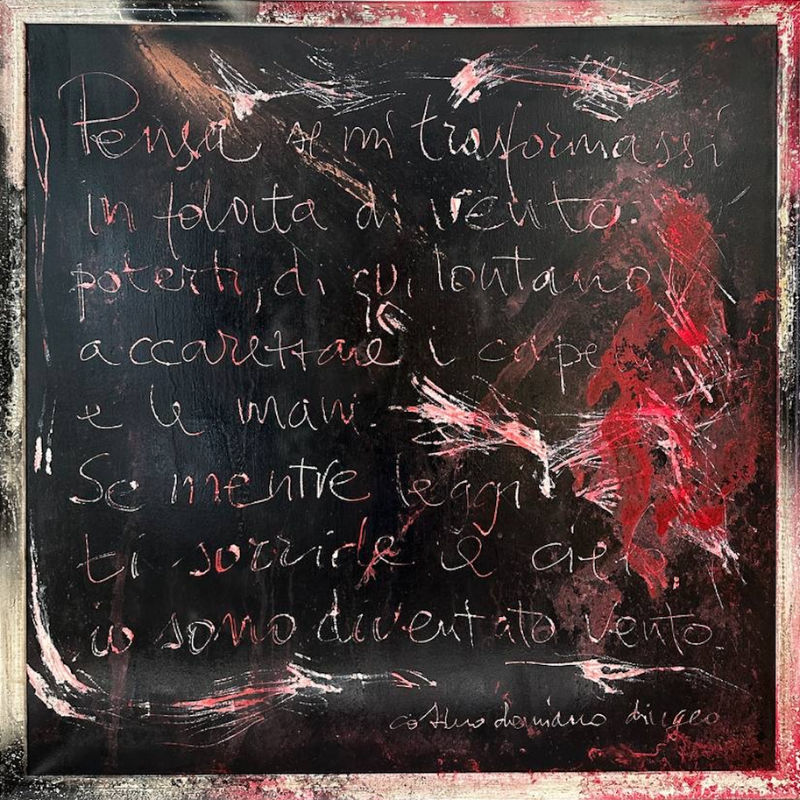 Pensa se mi trasformassi
in folata di vento.
poterti, di qui lontano
accarezzare i cape
e le mani.
Se mentre leggi
ti sorride il cielo,
io sono diventato vento.
damiano